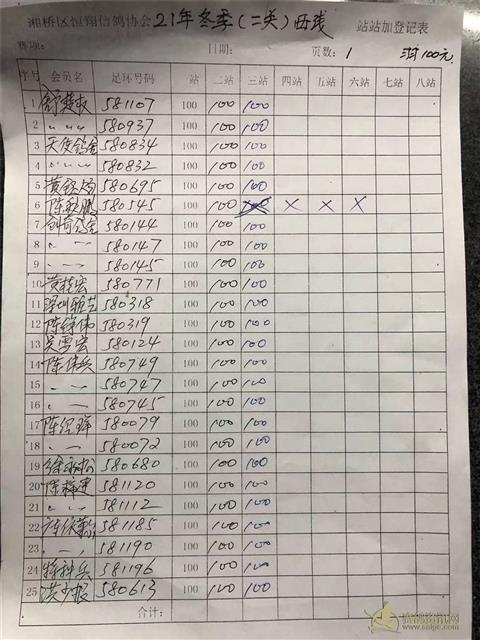 湘桥区恒翔信鸽协会 21年冬季(二关)西线 站站加登记表
赛项: 日期: 页数: 1 100元
序号 会员名 足环号码 一站 二站 三站 四站 五站 六站 七站 八站
1 581107 100 100 100
2 〃 〃 〃 580937 100 100 100
3 天使鸽舍 580834 100 100 100
4 〃 〃 〃 580832 100 100 100
5 580695 100 100 100
6 580545 100 100 100 × × ×
7 创奇鸽舍 580144 100 100 100
8 〃 〃 580147 100 100 100
9 〃 〃 580145 100 100 100
10 580771 100 100 100
11 580318 100 100 100
12 580319 100 100 100
13 580124 100 100 100
14 陈伟兵 580749 100 100 100
15 〃 〃 580747 100 100 100
16 〃 〃 580745 100 100 100
17 580079 100 100 100
18 〃 〃 580072 100 100 100
19 580680 100 100 100
20 581120 100 100 100
21 〃 〃 581112 100 100 100
22 581185 100 100 100
23 〃 〃 581190 100 100 100
24 特种兵 581196 100 100 100
25 580613 100 100 100
合计:
www.saige.com